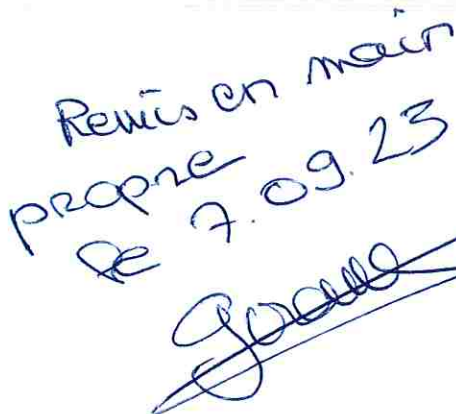 Remis en main
propre
le 7.09.23